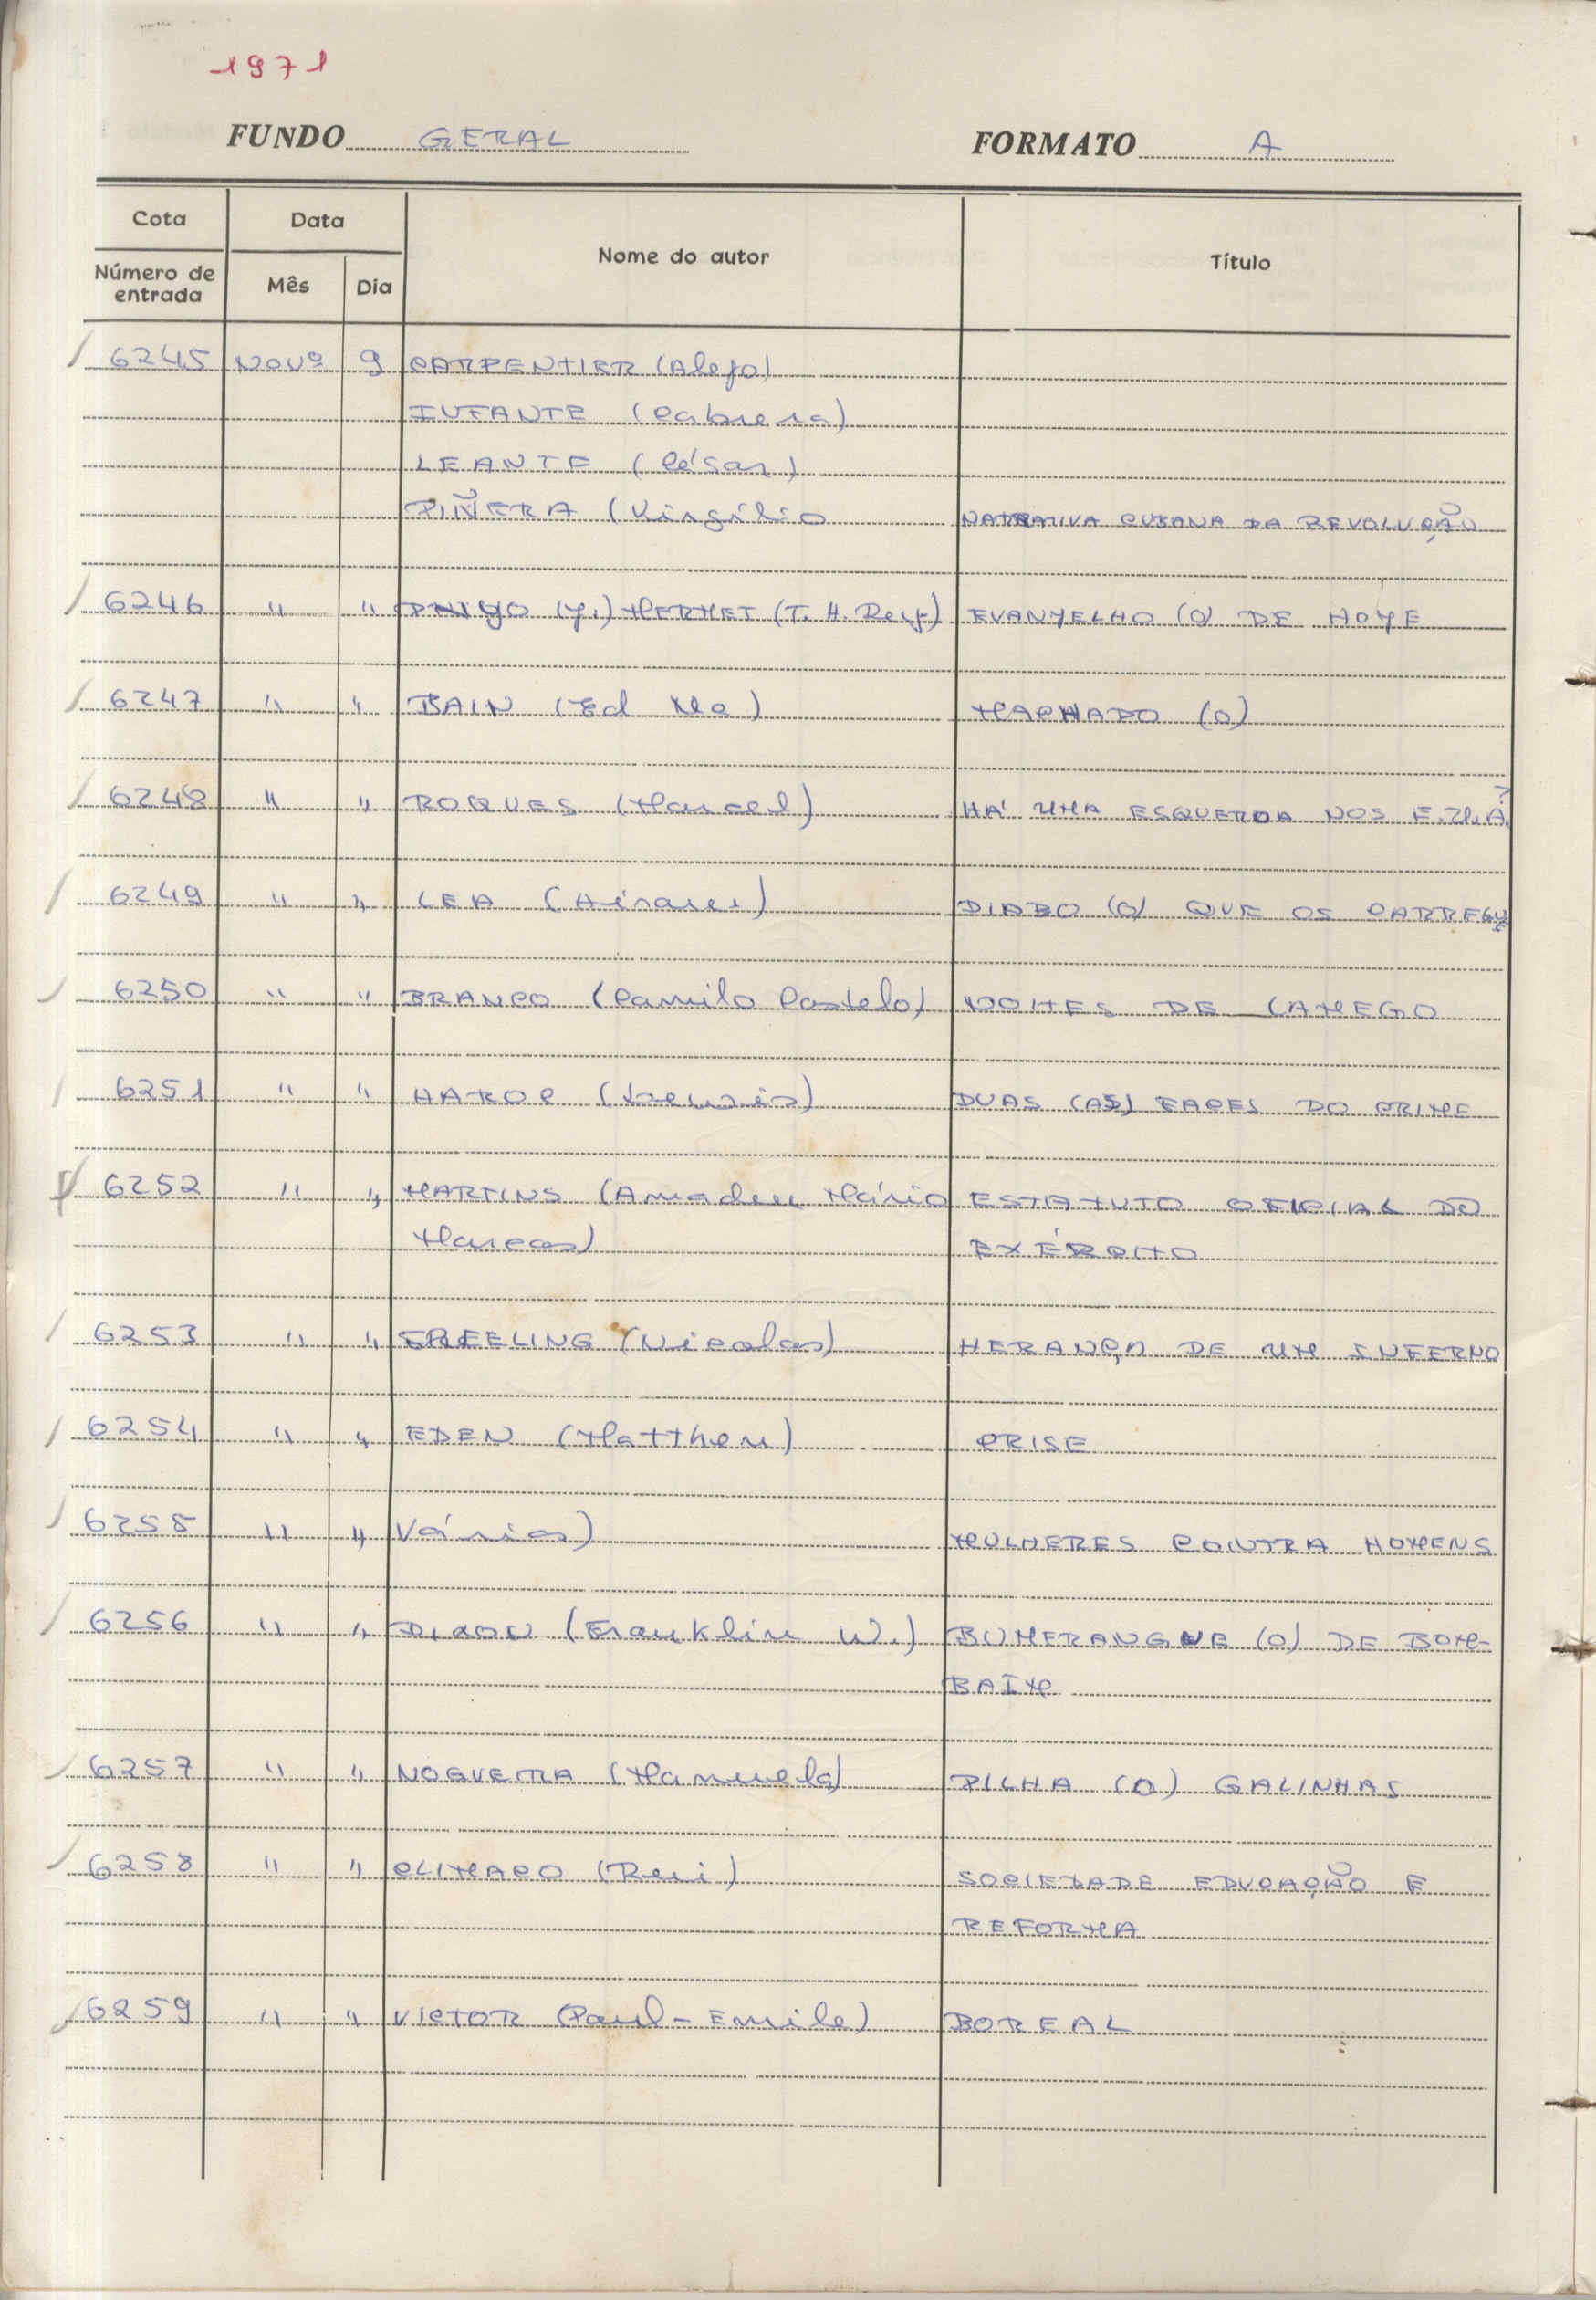 1971
FUNDO GERAL FORMATO A
Cota Data Nome do autor Título
Número de entrada Mês Dia
6245 Novº 9 CARPENTIER (Alejo)
INFANTE (Cabrera)
LEANTE (César)
PIÑERA (Virgílio NARRATIVA CUBANA DA REVOLUÇÃO
6246 " " (J.) MERMET (T. H. Rey) EVANJELHO (O) DE HOJE
6247 " " BAIN (Ed Mc) MACHADO (O)
6248 " " ROQUES (Marcel) HÁ UMA ESQUERDA NOS E.U.A.?
6249 " " LEA (Airam) DIABO (O) QUE OS CARREGUE
6250 " " BRANCO (Camilo Castelo) NOITES DE LAMEGO
6251 " " HAROC (Dennis) DUAS (AS) FACES DO CRIME
6252 " " MARTINS (Amadeu Mário ESTATUTO OFICIAL DO
Marcos) EXÉRCITO
6253 " " FREELING (Nicolas) HERANÇA DE UM INFERNO
6254 " " EDEN (Matthew) CRISE
6255 " " Vários) MULHERES CONTRA HOMENS
6256 " " DIXON (Franklin W.) BUMERANGUE (O) DE BOM-
BAIM
6257 " " NOGUEIRA (Manuela) PILHA (O) GALINHAS
6258 " " CLIMACO (Rui) SOCIEDADE EDUCAÇÃO E
REFORMA
6259 " " VICTOR (Paul-Emile) BOREAL